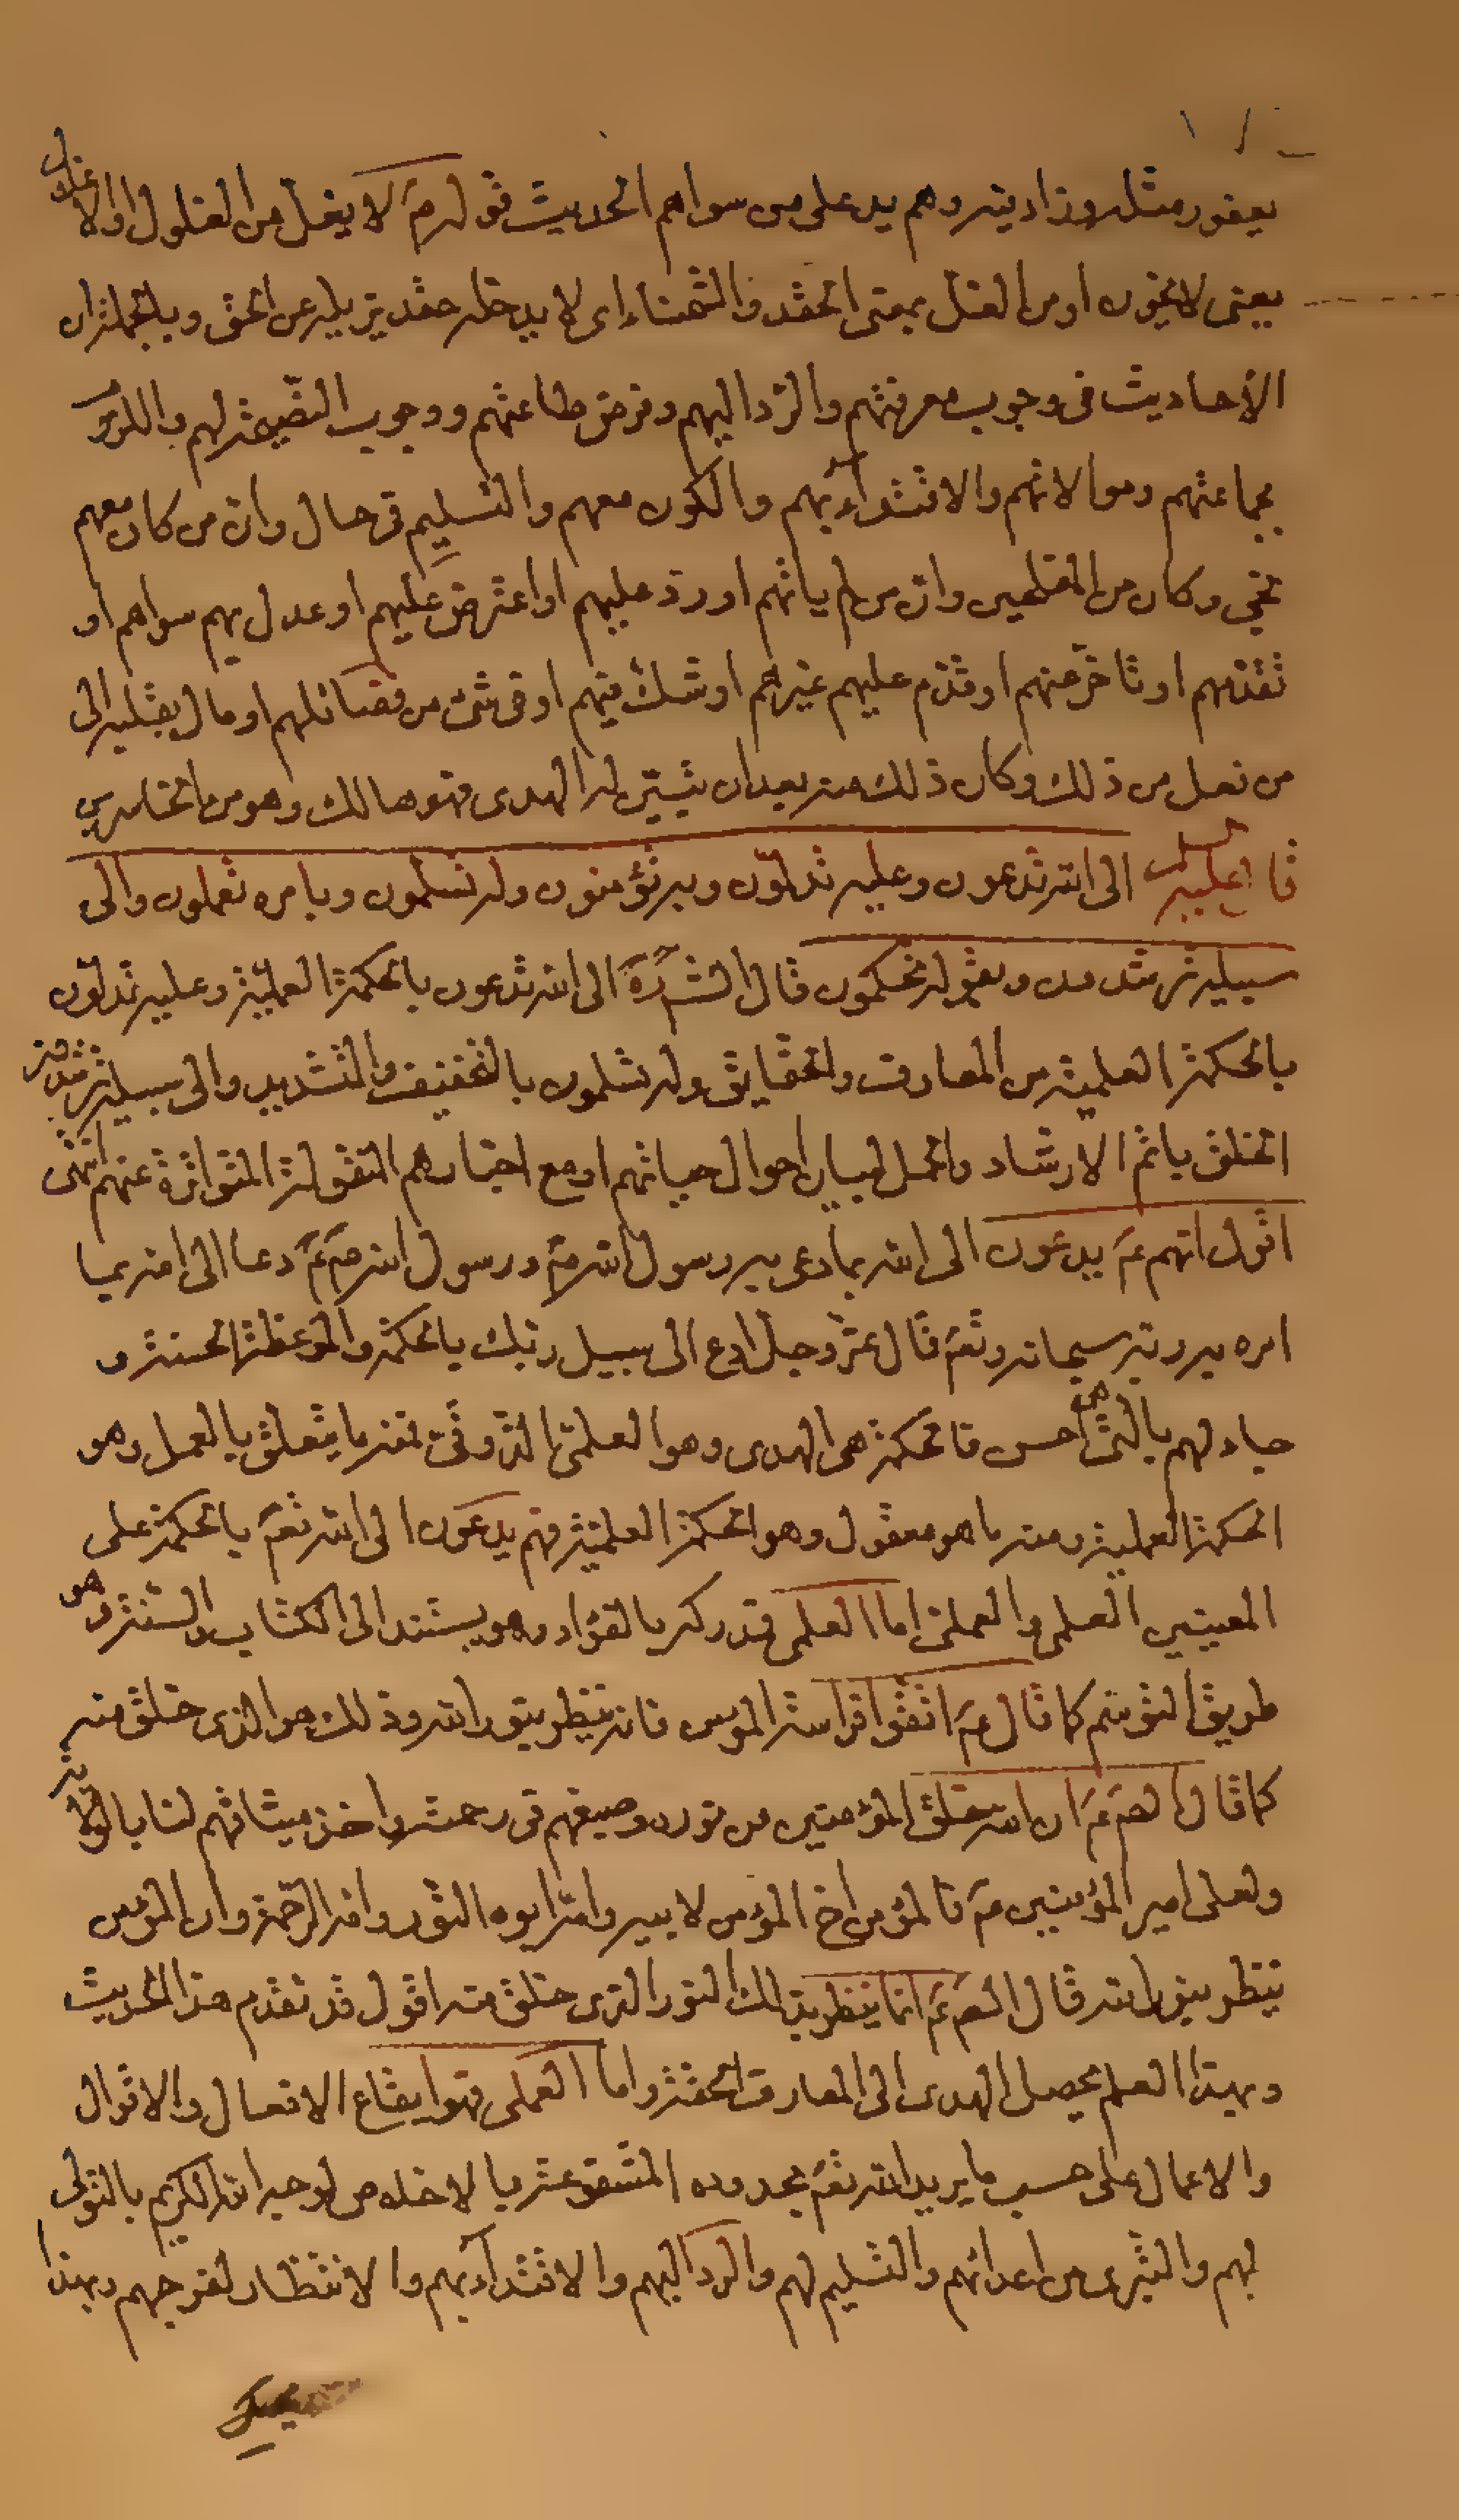 يعفور مثله وزاد فيه وهم يد على من سواهم الحديث قوله صۤ لا يغل من الغلول او الاغلال
يعنى لا يخون او من الغل بمعنى الحقد والشحناء اى لا يدخله حقد يزيله عن الحق وبالجملة ان
الأحاديث فى وجوب معرفتهم والرّد اليهم وفرض طاعتهم ووجوب النّصيحة لهم واللزوم
بجماعتهم وموالاتهم والاقتداۤء بهم والكون معهم والتسليم فى حال وان من كان معهم
نجى وكان من المفلحين وان من لم ياتهم او ردّ عليهم او اعترض عليهم او عدل بهم سواهم او
تقدّمهم او تاخّر عنهم او قدّم عليهم غيرهم او شك فيهم او فى شئ من فضائلهم او مال بقلبه الى
من فعل من ذلك وكان ذلك منه بعد ان تبيّن له الهدى فهو هالك وهو من الخاسرين
قال عليه السلم الى الله تدعون وعليه تدلّون وبه تؤمنون وله تسلمون وبامره تعملون والى
سبيله ترشدون وبقوله تحكمون قال الشۤ رهۤ الى الله تدعون بالحكمة العمليّة وعليه تدلّون
بالحكمة العلمية من المعارف والحقايق وله تسلمون بالتخفيف والتشديد والى سبيله ترشدون
الخلق باتم الارشاد والحمل لبيان احوال حياتهم او مع اخبارهم المنقولة المتواترة عنهم انتهى
اقول انهم عۤ يدعون الى الله بما دعى به رسول الله صۤ ورسول الله صۤ عۤ دعا الى الله بما
امره به ربّه سبحانه وتعۤ قال عزّ وجل ادع الى سبيل ربّك بالحكمة والموعظة الحسنة و
جادلهم بالتى هى احسن فالحكمة هى الهدى وهو العلمىّ الذوقىّ فمنه ما يتعلق بالعمل وهو
الحكمة العملية ومنه ما هو معقول وهو الحكمة العلميّة فهم يدعون الى الله تعۤ بالحكمة على
المعنيين العلمى والعملىّ اما العلمى فتدركه بالفؤاد وهو يستند الى الكتاب والسّنّة وهو
طريق التوسّم كما قال عۤ اتقوا فراسة المؤمن فانه ينظر بنور الله وذلك هو الذى خلق منه
كما قال الصۤ عۤ ان الله خلق المؤمنين من نوره وصبغهم فى رحمته واخذ ميثاقهم لنا بالولاية
ولعلى امير المؤمنين عۤ فالمؤمن اخ المؤمن لابيه وامّه ابوه النّور وامّه الرّحمة وان المؤمن
ينظر بنور الله قال الصۤ عۤ انما ينظر بذلك النور الذى خلق منه اقول قد تقدم هذا الحديث
وبهذا العلم يحصل الهدى الى المعارف الحقّة واما العملى فهو ايقاع الافعال والاقوال
والاعمال على حسب ما يريد الله تعۤ بحدوده المشفوعة بالاخلاص لوجه الله الكريم بالتولى
لهم والتبرى من اعدائهم والتسليم لهم والرد اليهم والاقتداۤء بهم والانتظار لفرجهم وبهذا